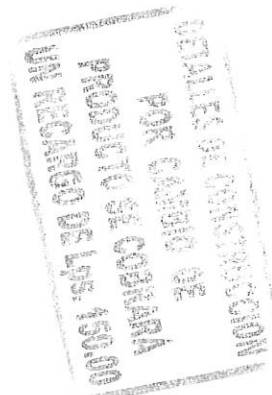 DETALLES DE CONSTRUCCION
POR CAMBIO DE
PRODUCTO SE COBRARÁ
UN RECARGO DE Lps. 150.00